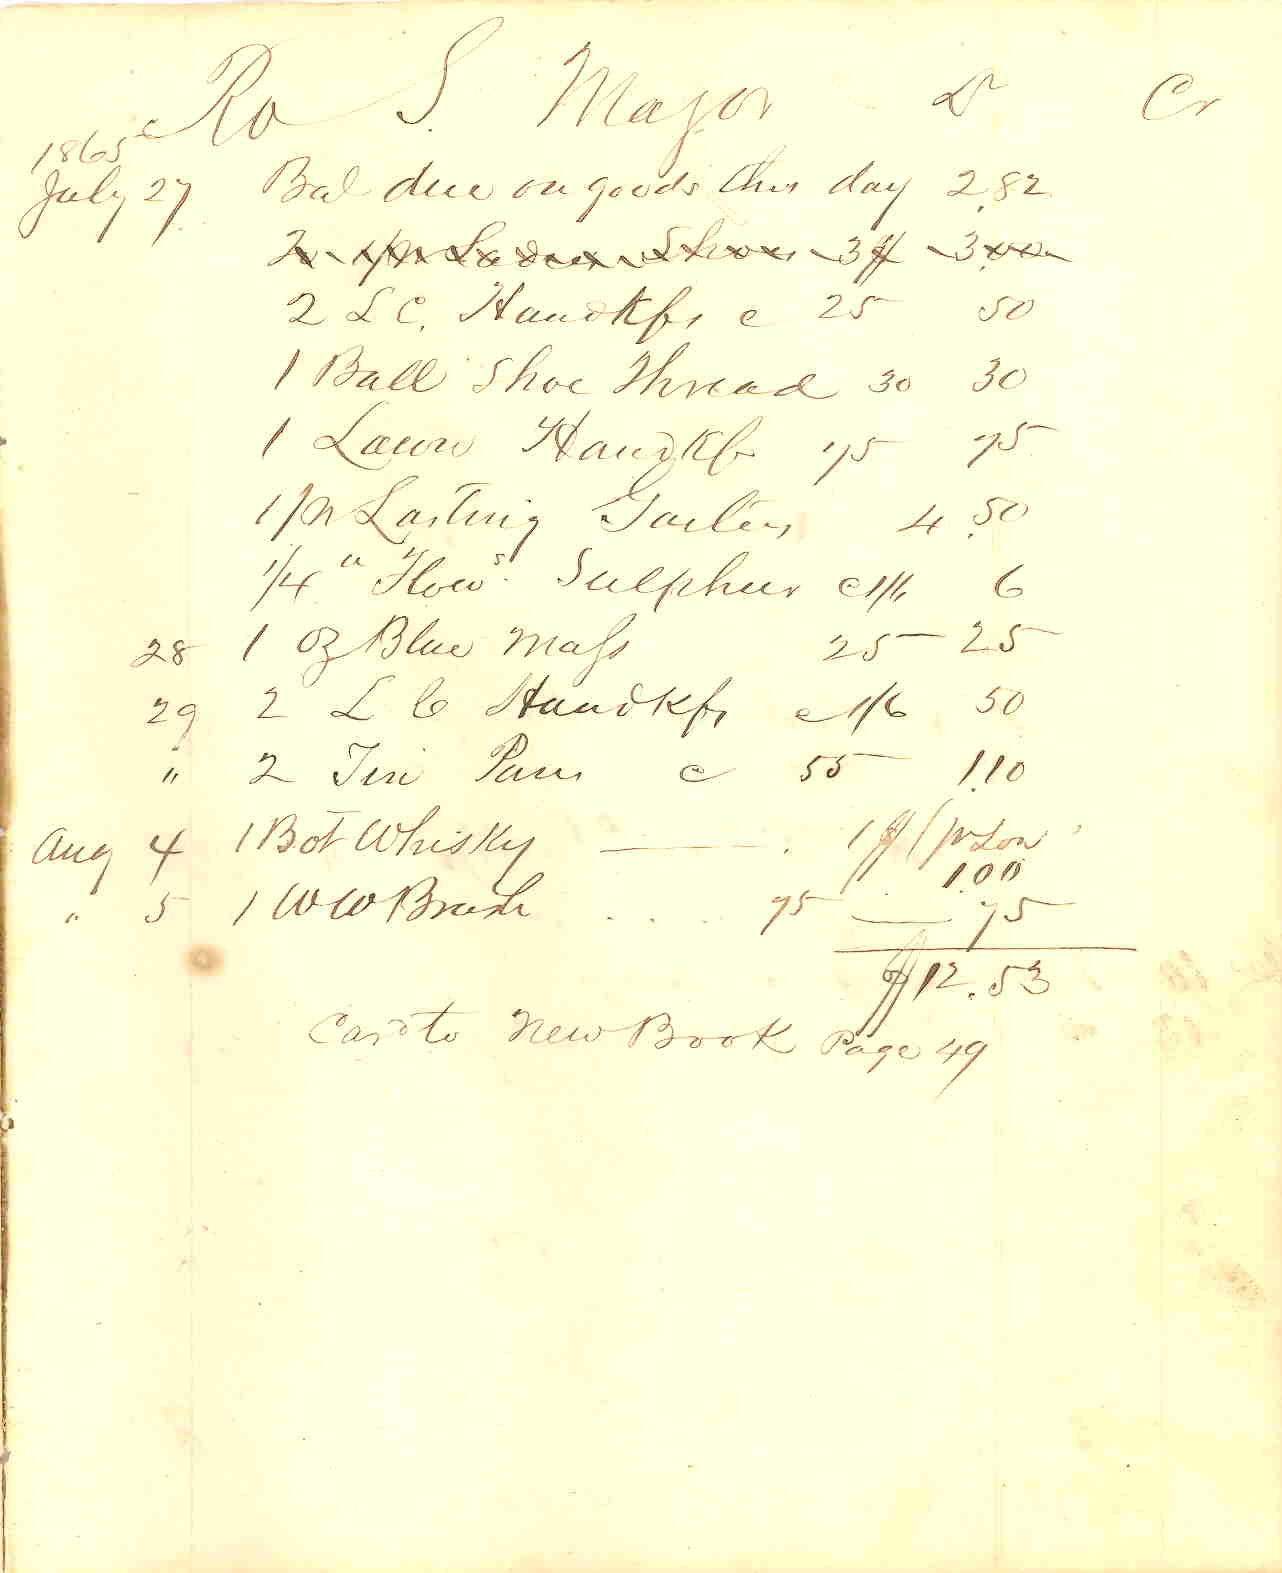 Ro S. Major Dr Cr
1865
July 27 Bal due on goods this day 2.82
Shoes 3$ 3.00
2 L C. Handkfs c 25 50
1 Ball Shoe Thread 30 30
1 Lawn Handkf 75 75
1 pr Lasting Gaiters 4.50
1/4 " Flows. Sulphur c 1/6 6
28 1 oz Blue Mass 25 25
29 2 L C Handkfs c 1/6 50
" 2 Tin Pans c 55 1.10
Aug 4 1 Bot Whisky 1$ (pr Son
1.00
" 5 1 W W Brush .... 75 75
$12.53
Card to New Book Page 49